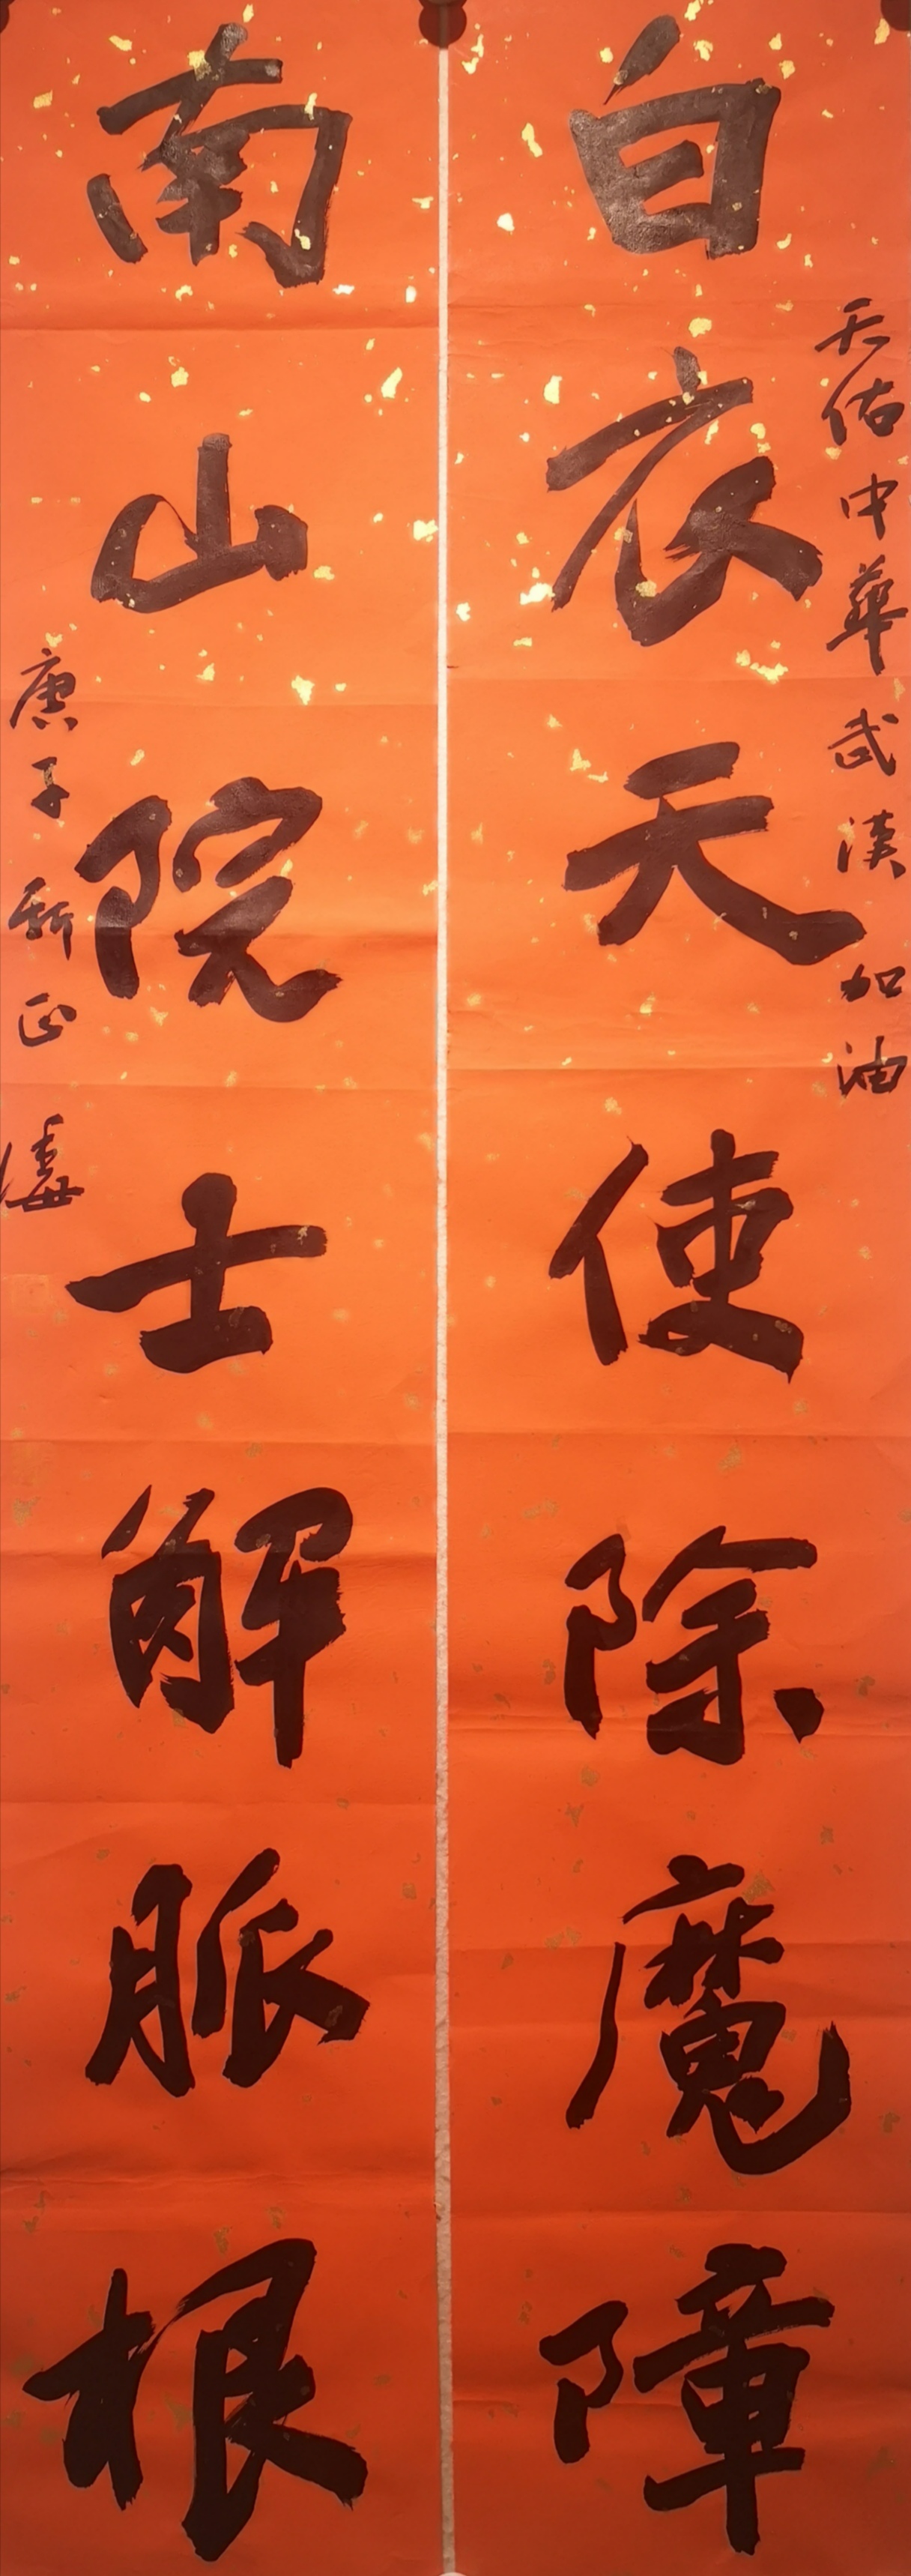 天佑中華武漢加油
白衣天使除魔障
南山院士解脈根
庚子新正